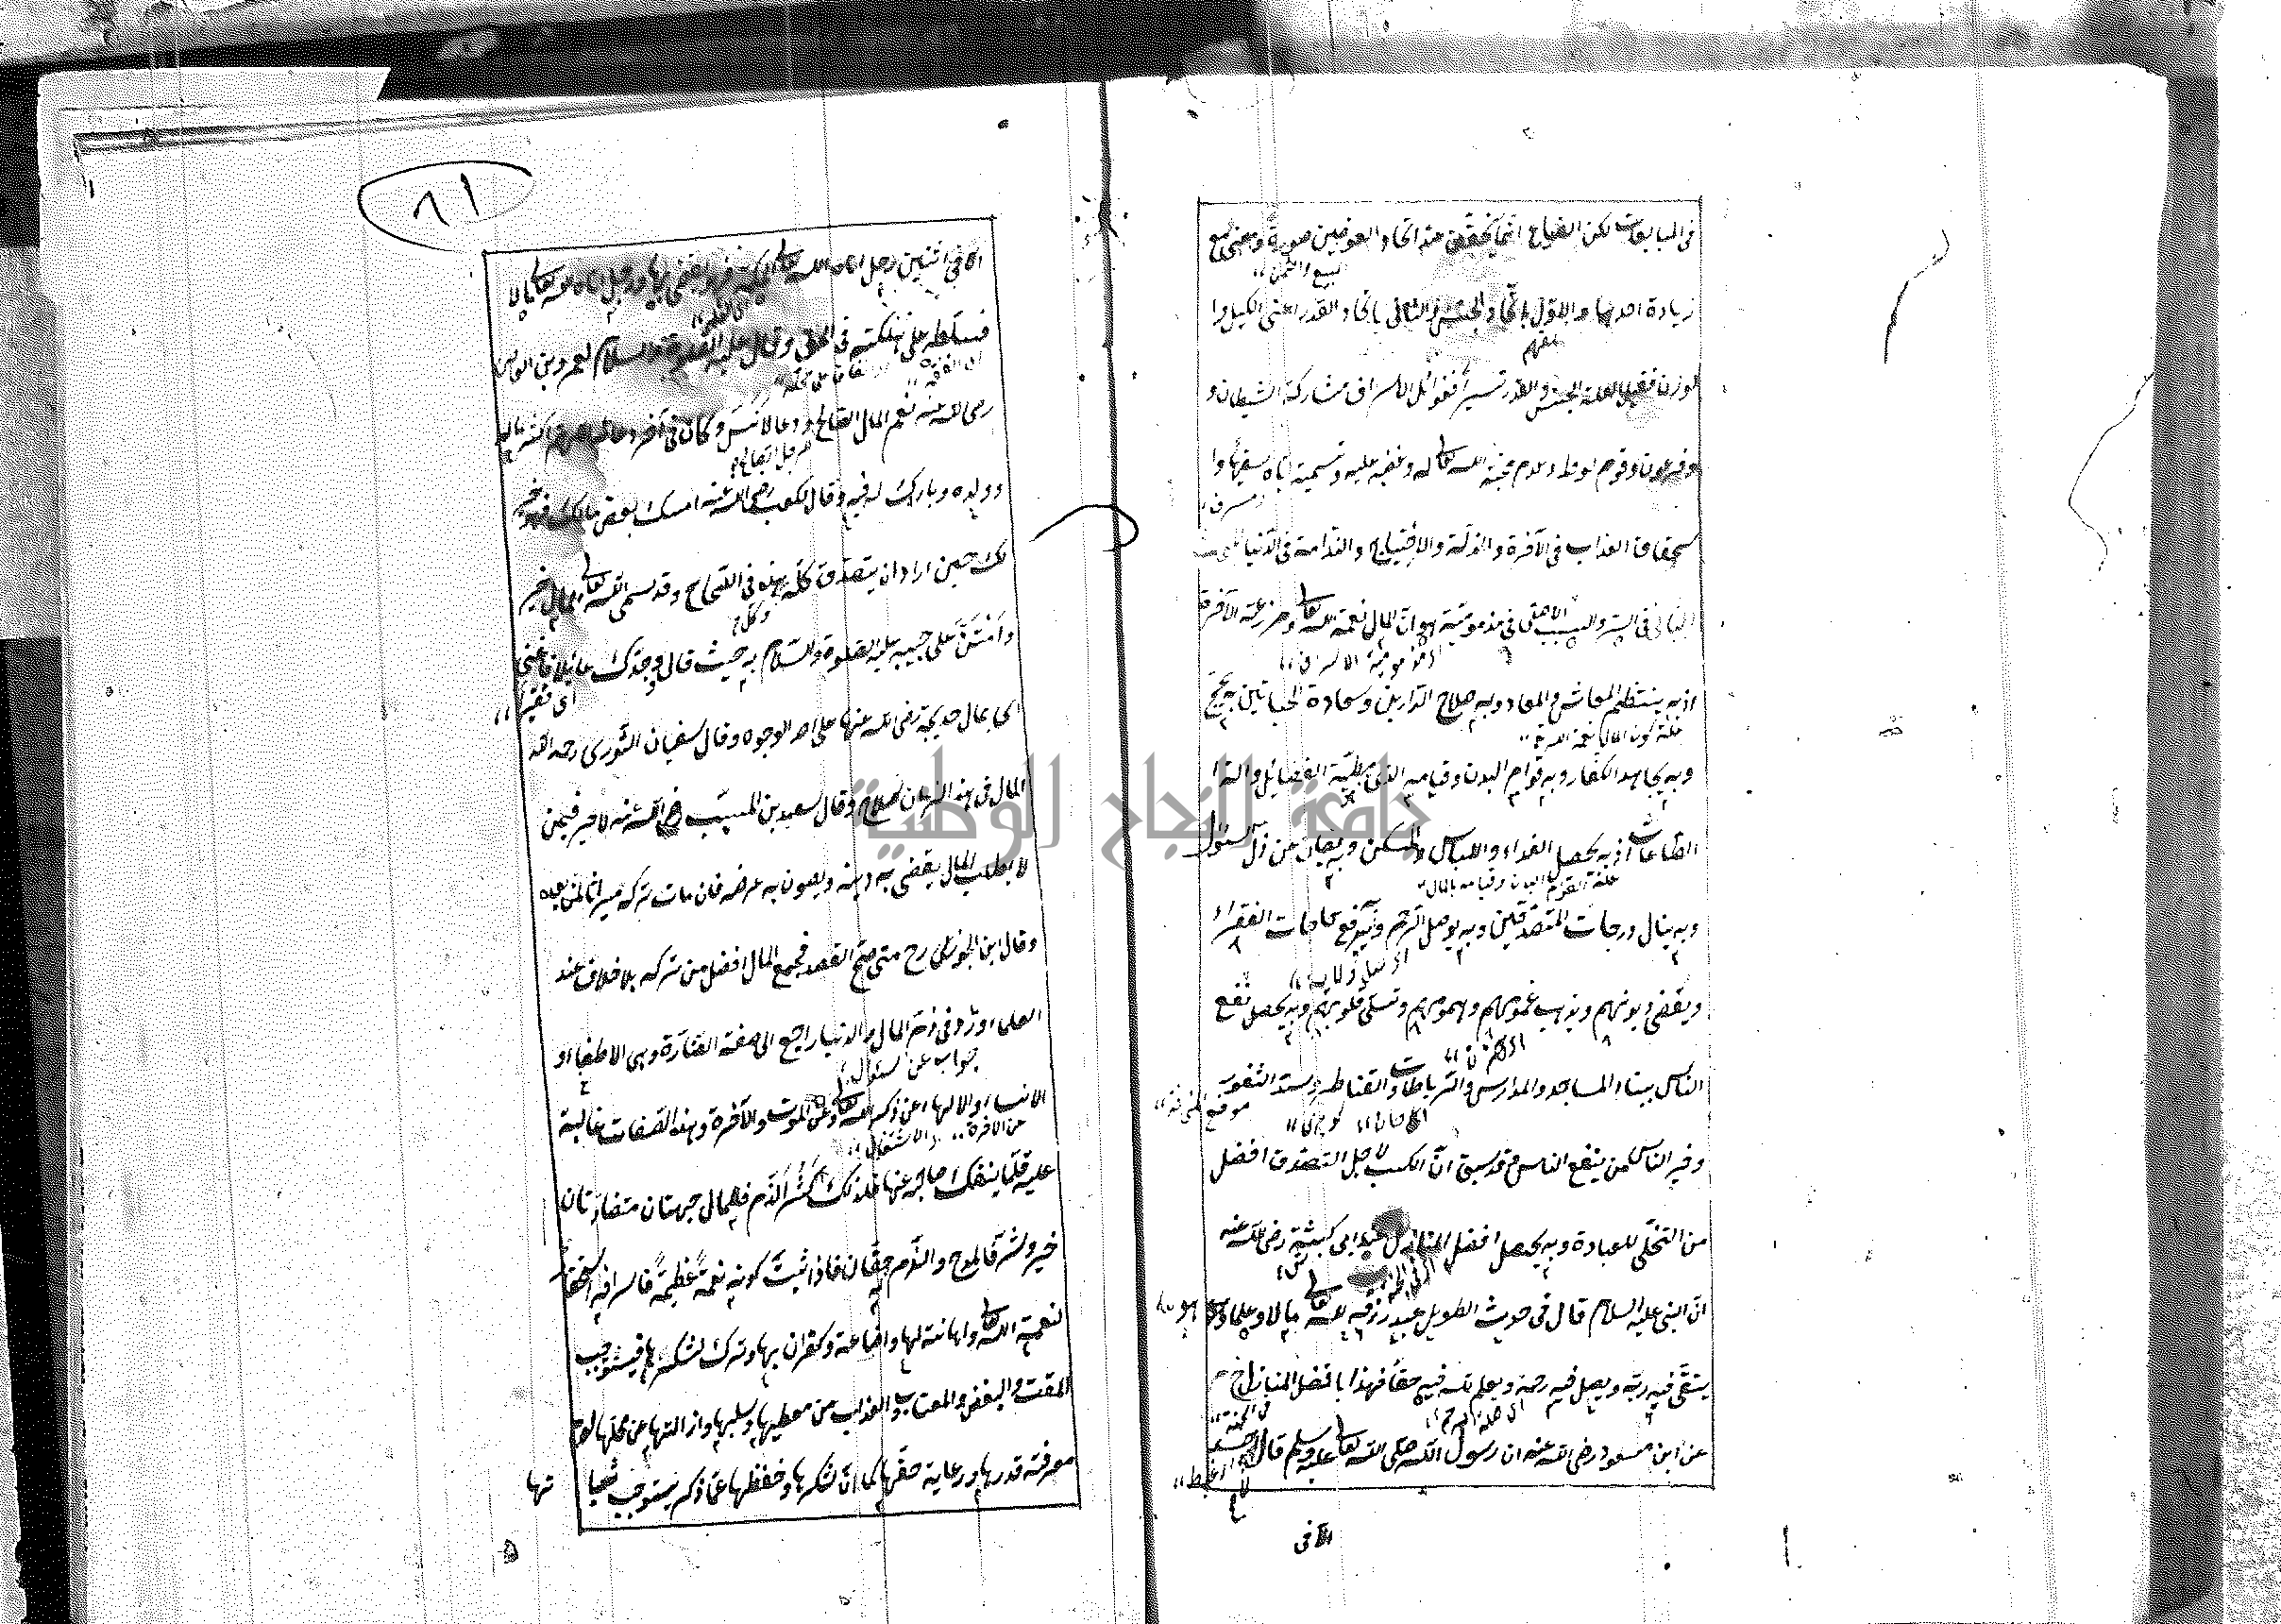 في المبايعات لكن الضياع انما يتحقق عند اتحاد العوضين صورة ومعنى مع
البيع والثمن
زيادة احدهما والاول باتحاد الجنس والثاني باتحاد القدر اعني الكيل وا
لوزن فقيل العلة الجنس والقدر تيسيرا فغوائل الاسراف مشاركة الشيطان و
وفرعون وقوم لوط وعدم محبة الله تعالى له وغضبه عليه وتسمية اياه سفيها وا
مسرف
ستحقاق العذاب في الآخرة والذلة والاحتياج والندامة في الدنيا
الثاني في السر والسبب الاصلي في مذموميته هو ان المال نعمة الله تعالى ومزرعة الآخرة
اي مذمومية الاسراف
اذ به ينتظم المعاش والمعاد وبه صلاح الدارين وسعادة الحياتين به يحج
علة كون المال نعمة
وبه يجاهد الكفار وبه قوام البدن وقيامه الذي مطية الفضائل والة ا
الطاعات اذ به يحصل الغداء واللباس والمسكن وبه يصان من ذل السؤال
علة لقوام البدن وقيامه بالمال
وبه ينال درجات المتصدقين وبه يوصل الرحم وبه يرفع حاجات الفقراء
ويقضي ديونهم ويذهب غمومهم وهمومهم وتسلى قلوبهم وبه يحصل نفع
الناس ببناء المساجد والمدارس والرباطات والقناطر وسد الثغور
وخير الناس من ينفع الناس وقد سبق ان الكسب لاجل التصدق افضل
من التخلي للعبادة وبه يحصل افضل المنازل عند ابي كبشة رضي الله عنه
ان النبي عليه السلام قال في حديث الطويل عبد رزقه الله تعالى مالا وعلما وهو
يتقي فيه ربه ويصل فيه رحمه ويعلم لله فيه حقا فهذا بافضل المنازل
اي صلة الرحم
في الجنة
عن ابن مسعود رضي الله عنه ان رسول الله صلى الله تعالى عليه وسلم قال لا حسد
الا في
٨١
الا في اثنتين رجل اتاه الله تعالى الحكمة فهو يقضي بها ورجل اتاه الله تعالى مالا
فسلطه على هلكته في الحق وقال عليه الصلوة والسلام لعمرو بن العاص
رضي الله عنه نعم المال الصالح ودعا لانس وكان في آخر دعائه اللهم اكثر ماله
وولده وبارك له فيه وقال لكعب رضي الله عنه امسك بعض مالك فهو خير
لك حين اراد ان يتصدق كله وهذه في الصحاح وقد سمى الله تعالى المال خير
وامتن على حبيبه عليه الصلوة والسلام به حيث قال ووجدك عائلا فاغنى
اي فقيرا
اي بمال خديجة رضي الله عنها على احد الوجوه وقال سفيان الثوري رحمه الله
المال في هذا الزمان سلاح وقال سعيد بن المسيب رضي الله عنه لا خير فيمن
لا يطلب المال يقضي به دينه ويصون به عرضه فان مات تركه ميراثا لمن بعده
وقال ابن الجوزي رح متى صح القصد فجمع المال افضل من تركه بلا خلاف عند
العلماء وورد في ذم المال والدنيا راجع الى صفته الضارة وهي الاطغاء او
جواب عن السؤال
الانساء والالهاء عن ذكر الله تعالى وعن الموت والآخرة وهذه الصفات غالبة
عن الآخرة والاشتغال
عليه قلما ينفك صاحبه عنها فلذلك كثر الذم فللمال جهتان متضادتان
خير وشر فالمدح والذم حقان فاذا ثبت كونه نعمة عظيمة فاسرافه استحقار
لنعمة الله تعالى واهانة لها واضاعة وكفران بها وترك لشكرها فيستوجب
المقت والبغض والعتاب والعذاب من معطيها وسلبها وازالتها عن محلها لعدم
معرفته قدرها ورعاية حقها كما ان شكرها وحفظها عما ذكر يستوجب ثبا
تها
جامعة النجاح الوطنية